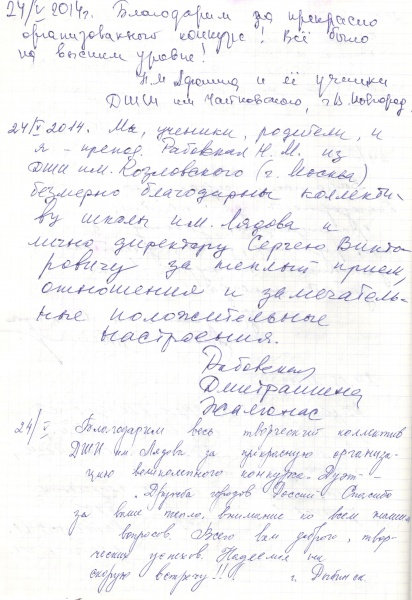 24/V 2014г. Благодарим за прекрасно
организованный конкурс! Всё было
на высшем уровне!
Н.М. и её ученики
ДШИ им. Чайковского, г. Н. Новгород.
24/V 2014. Мы, ученики, родители, и
я - препод. Рабовская Н.М. из
ДШИ им. Козловского (г. Москва)
безмерно благодарны коллекти-
ву школы им. Лядова и
лично директору Сергею Викто
ровичу за теплый прием,
отношения и замечатель-
ные положительные
настроения.
Рабовская
24/V Благодарим весь творческий коллектив
ДШИ им. Лядова за прекрасную организа-
цию великолепного конкурса. Дуэт -
"Дружба городов России" Спасибо
за ваше тепло, внимание ко всем нашим
вопросам. Всего вам доброго, твор-
ческих успехов. Надеемся на
скорую встречу!!! г. Рыбинск.